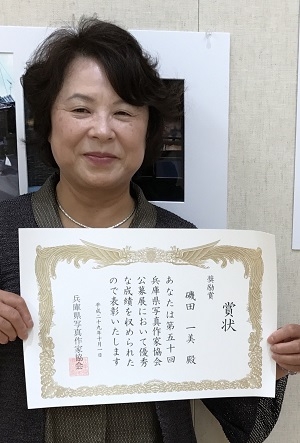 奨励賞
賞状
磯田 一美 殿
あなたは第五十回
兵庫県写真作家協会
公募展において優秀
な成績を収められた
ので表彰いたします
平成二十九年十月一日
兵庫県写真作家協会